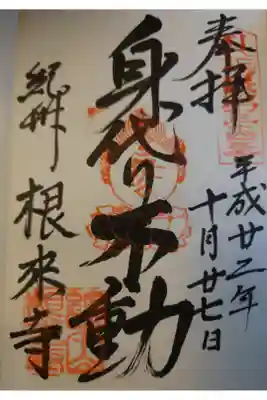 奉拝
平成廿二年
十月廿七日
身代り不動
紀州
根來寺